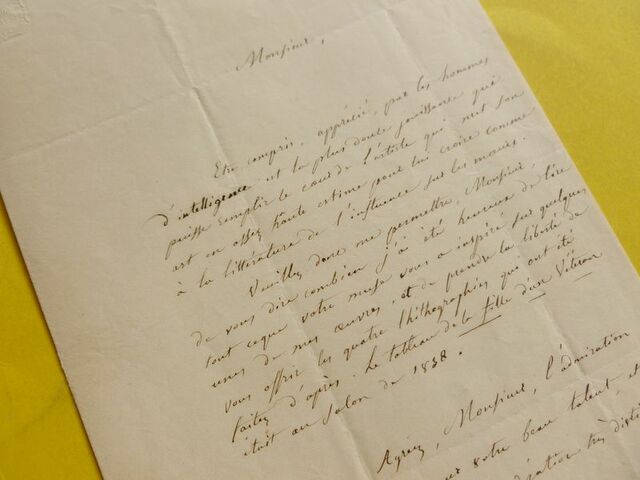 Monsieur,
Etre compris, apprécié, par les hommes
d'intelligence est la plus douce jouissance qui
puisse remplir le cœur de l'artiste qui met son
art en assez haute estime pour lui croire comme
à la littérature de l'influence sur les mœurs.
Veuillez donc me permettre, Monsieur,
de vous dire combien j'ai été heureux de lire
tout ce que votre muse vous a inspiré sur quelques
unes de mes œuvres, et de prendre la liberté de
vous offrir les quatre lhithographies qui ont été
faites d'après. Le tableau de la fille d'un Vétéran
était au Salon de 1838.
Agréez, Monsieur, l'admiration
votre beau talent, et
très disti